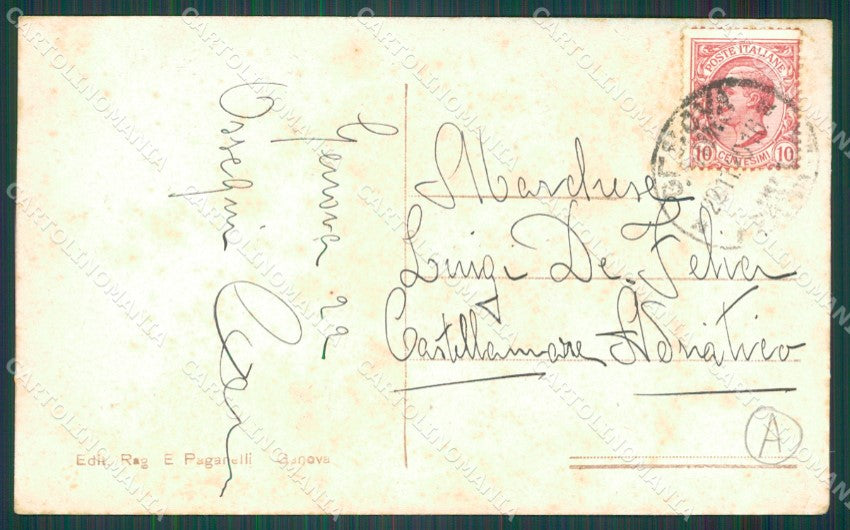 POSTE ITALIANE
10 CENTESIMI 10
GENOVA
Genova 22
Ossequi
Marchese
Luigi De Felici
Castellamare Adriatico
A
Edit. Rag E Paganelli Genova
CARTOLINOMANIA